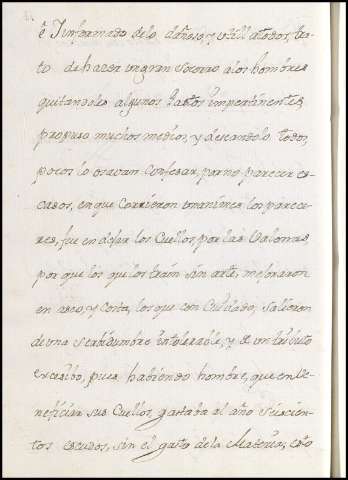 è Informado delo dañoso, y util atodos, tra-
to de hazer un gran Socorro alos hombres
quitandoles algunos gastos impertinentes,
propuso muchos medios, y deseandolo todos,
pocos lo osavan confesar, por no parecer es-
casos, en que Corrieron unanimes los parece-
res, fue en dejar los Cuellos, por las Valonas,
por que los que los traín sin arte, mejoraron
en aseo, y Costa, los que con Cuidado, Salieron
de una Servidumbre intolerable, y de un tributo
excesibo, pues habiendo hombre, que en be-
neficiar sus Cuellos, gastaba al año Seiscien-
tos escudos, sin el gasto dela Materia, esto